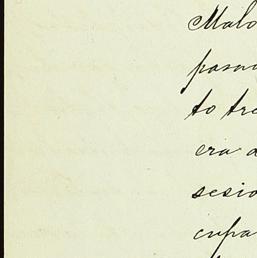 Malo
pasa
to tre
era a
sesio
cupa